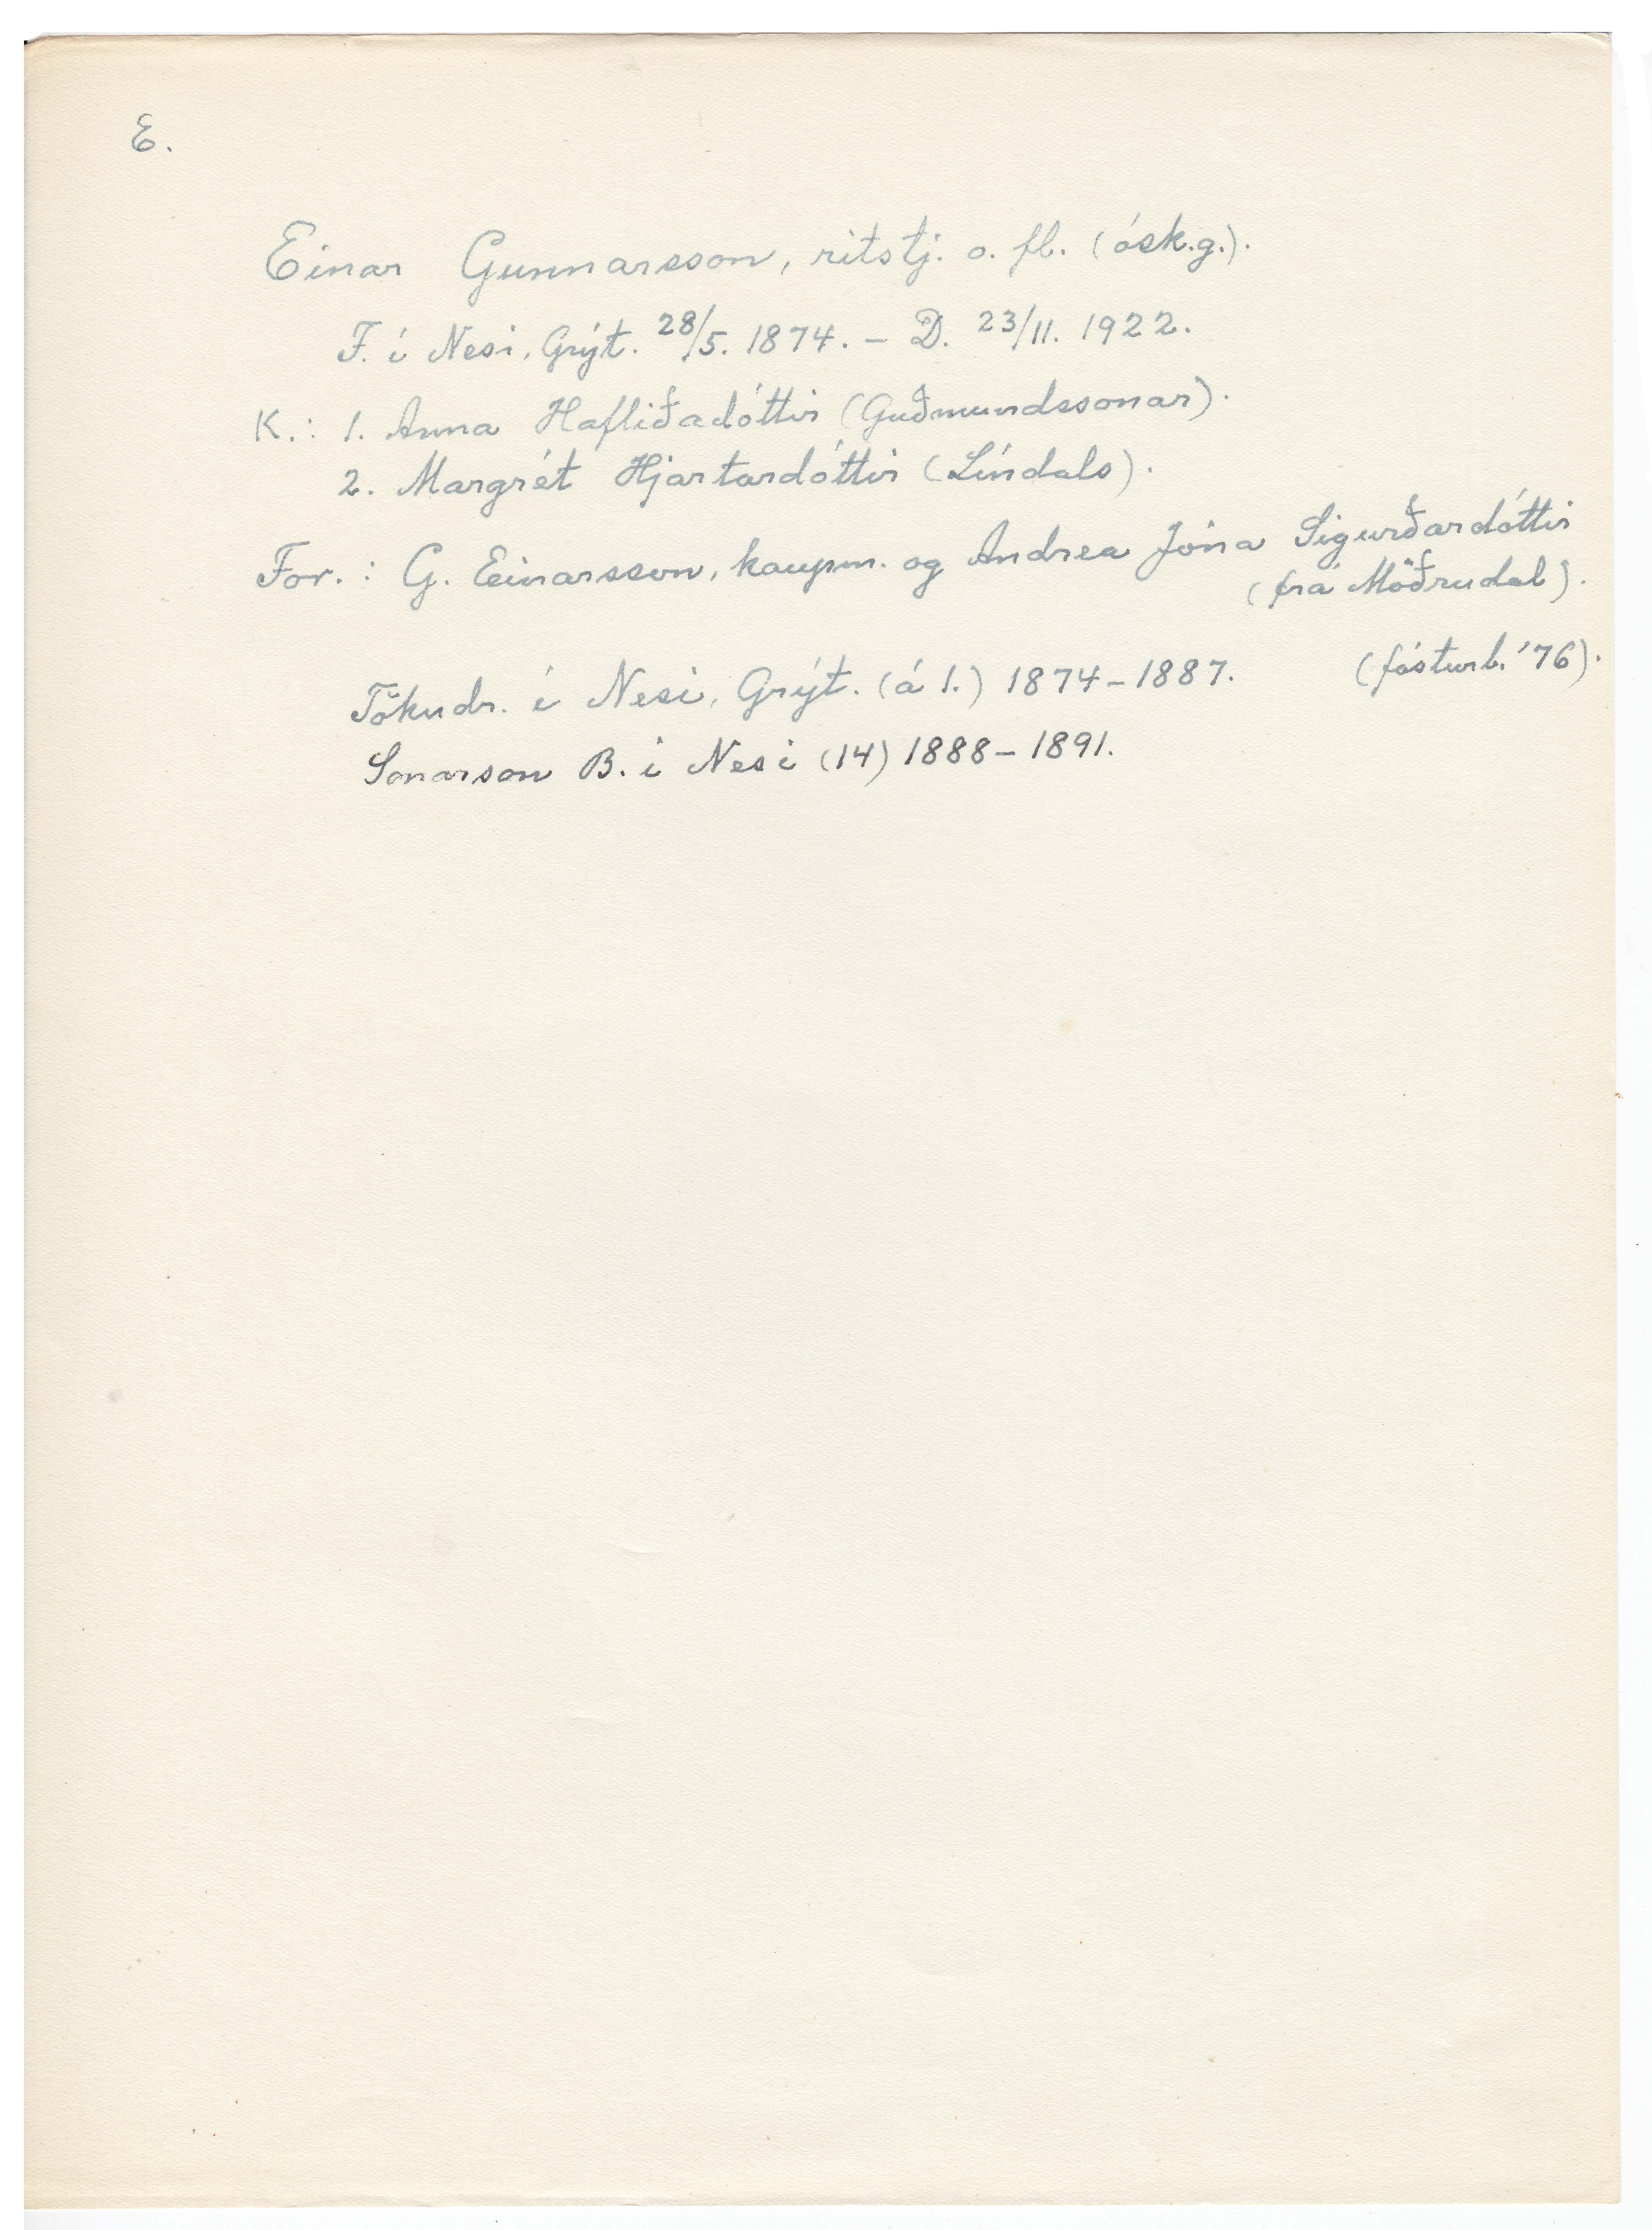 E.
Einar Gunnarsson, ritstj. o. fl. (ósk.g.).
F. í Nesi, Grýt. 28/5. 1874. – D. 23/11. 1922.
K.: 1. Anna Hafliðadóttir (Guðmundssonar).
2. Margrét Hjartardóttir (Líndals).
For.: G. Einarsson, kaupm. og Andrea Jóna Sigurðardóttir
(frá Möðrudal).
Tökudr. í Nesi, Grýt. (á 1.) 1874–1887. (fósturb. '76).
Sonarson B. í Nesi (14) 1888–1891.